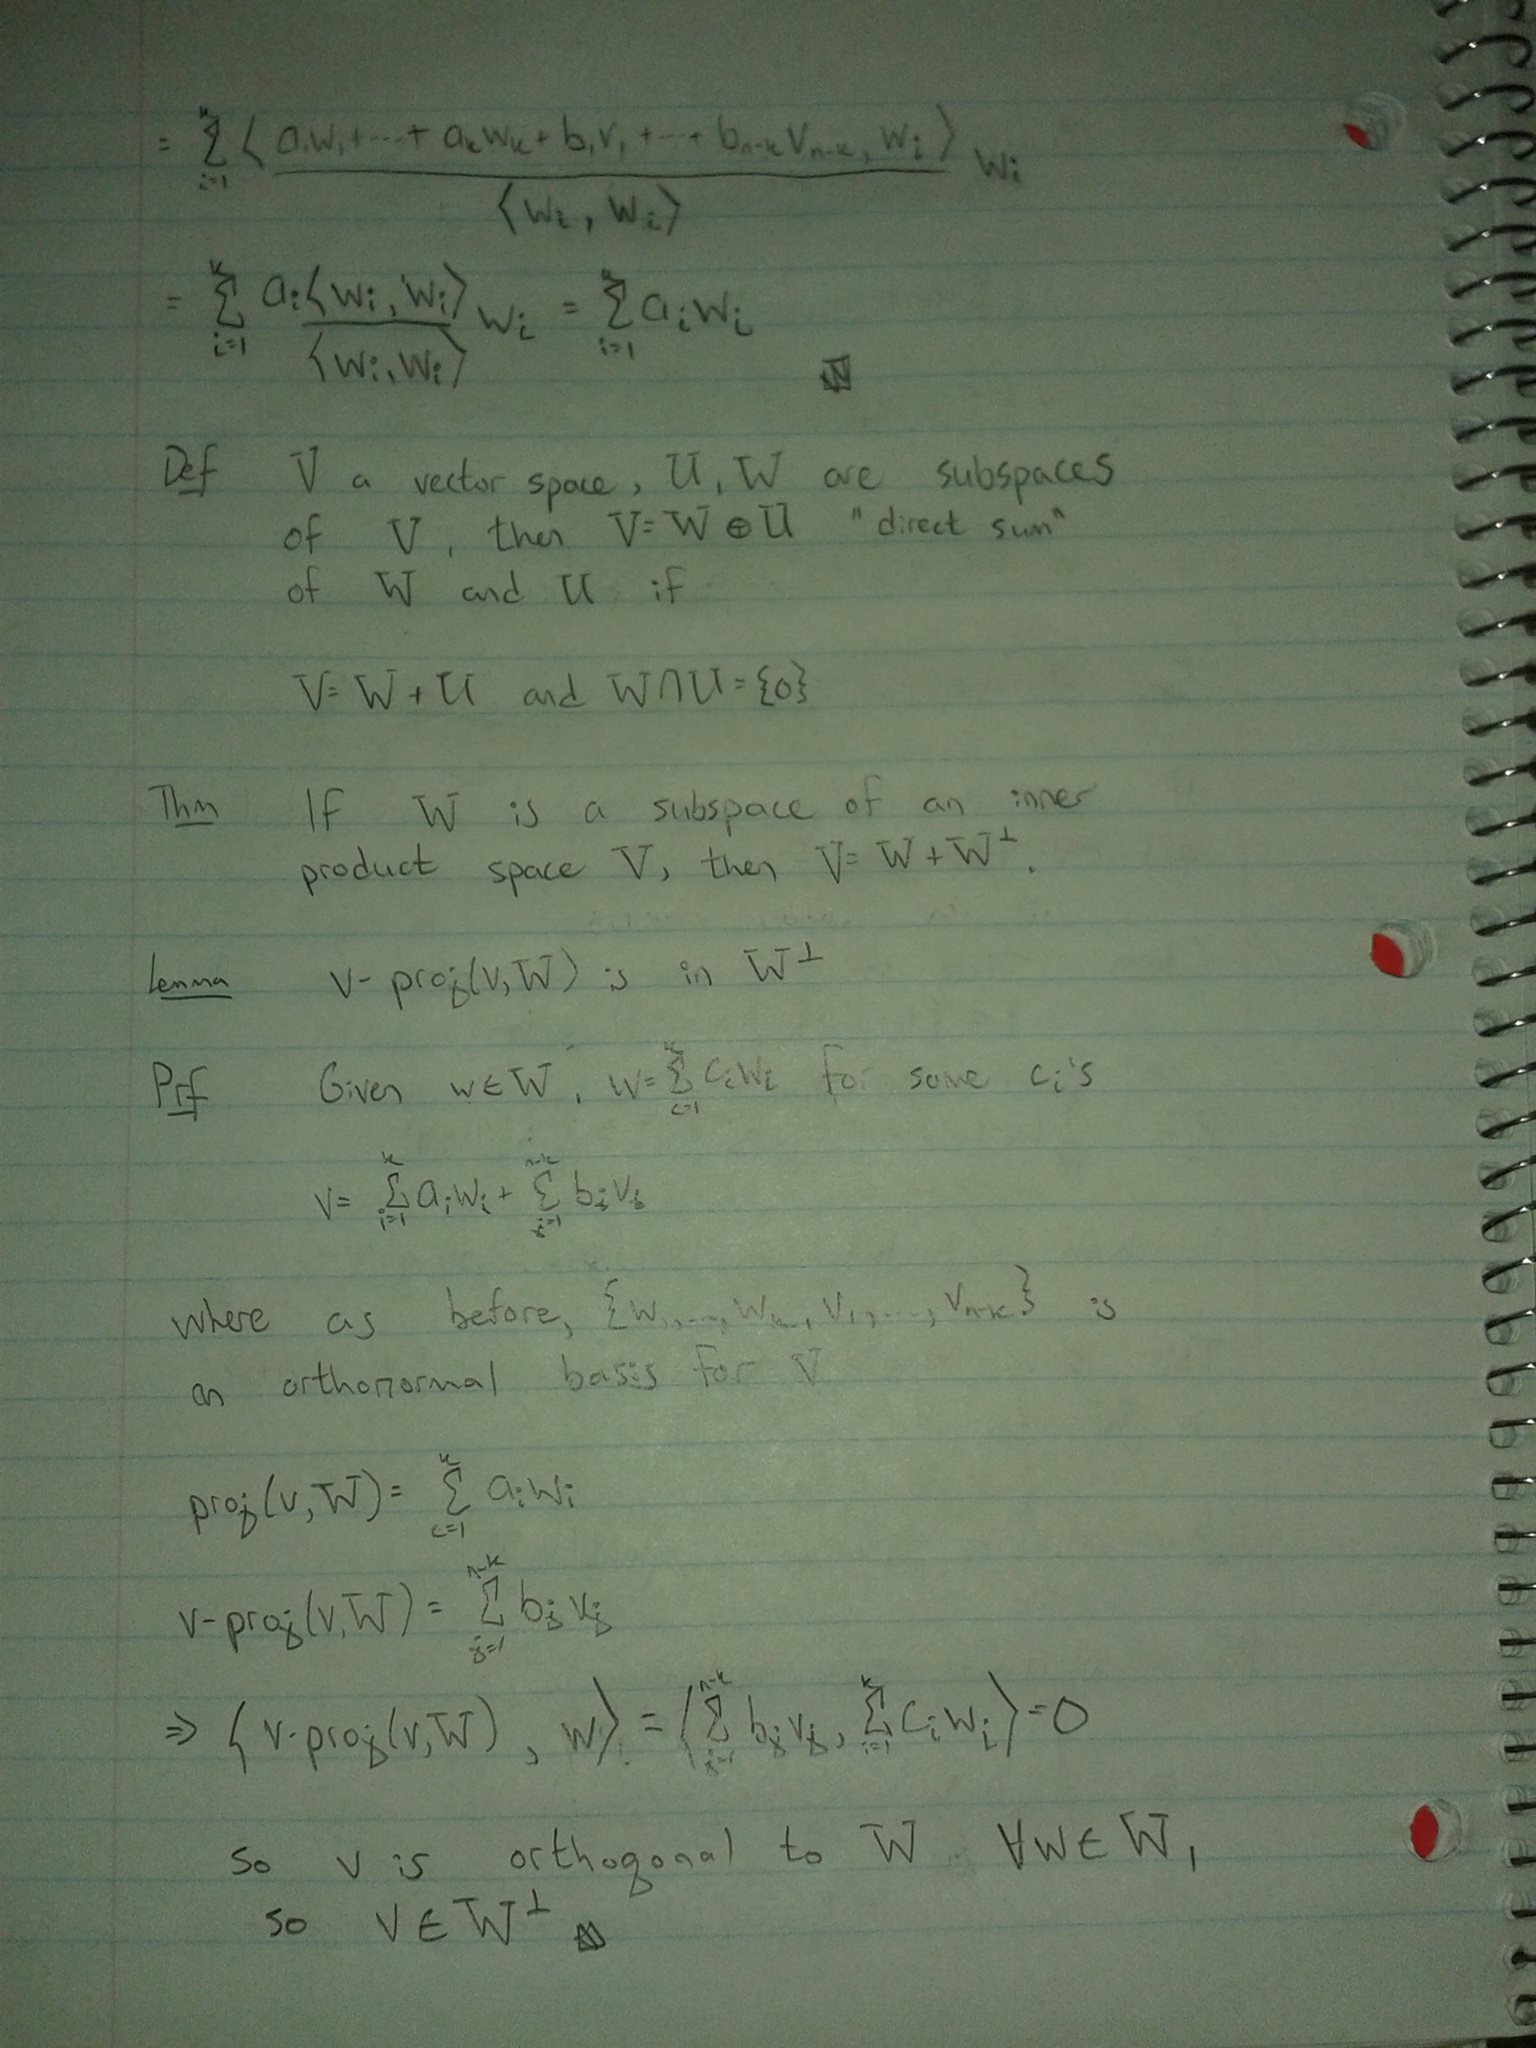 = Σ_{i=1}^{k} ⟨a₁w₁+···+aₖwₖ+b₁v₁+···+bₙ₋ₖvₙ₋ₖ, wᵢ⟩ / ⟨wᵢ, wᵢ⟩ wᵢ
= Σ_{i=1}^{k} aᵢ⟨wᵢ, wᵢ⟩ / ⟨wᵢ, wᵢ⟩ wᵢ = Σ_{i=1}^{k} aᵢwᵢ
Def V a vector space, U, W are subspaces
of V, then V=W⊕U "direct sum"
of W and U if
V=W+U and W∩U={0}
Thm If W is a subspace of an inner
product space V, then V=W+W^⊥.
Lemma v-proj(v,W) is in W^⊥
Prf Given w∈W, w=Σ_{i=1}^{k} cᵢwᵢ for some cᵢ's
v= Σ_{i=1}^{k} aᵢwᵢ + Σ_{j=1}^{n-k} bⱼvⱼ
where as before, {w₁,...,wₖ,v₁,...,vₙ₋ₖ} is
an orthonormal basis for V
proj(v,W)= Σ_{i=1}^{k} aᵢwᵢ
v-proj(v,W)= Σ_{j=1}^{n-k} bⱼvⱼ
⇒ ⟨v-proj(v,W), w⟩=⟨Σ_{j=1}^{n-k} bⱼvⱼ, Σ_{i=1}^{k} cᵢwᵢ⟩=0
so v is orthogonal to W ∀w∈W,
so v∈W^⊥